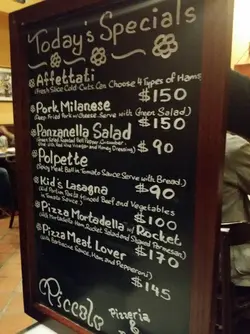 Today's Specials
Affettati
(Fresh Slice Cold-Cuts. Can Choose 4 Types of Hams)
$150
Pork Milanese
(Deep Fried Pork w/Cheese. Serve with Green Salad)
$150
Panzanella Salad
Bell Pepper Cucumber
with Red Wine Vinegar and Honey Dressing)
$90
Polpette
Meat Ball in Tomato Sauce. Serve with Bread)
$90
Kid's Lasagna
(Kid Portion Beef and Vegetables
in Tomato Sauce)
$100
Pizza Mortadella w/ Rocket
Mortadella Ham, Rocket Salad and Parmesan)
$170
Pizza Meat Lover
(with Barbecue Sauce, Ham and Pepperoni)
$145
Piccolo Pizzeria
&